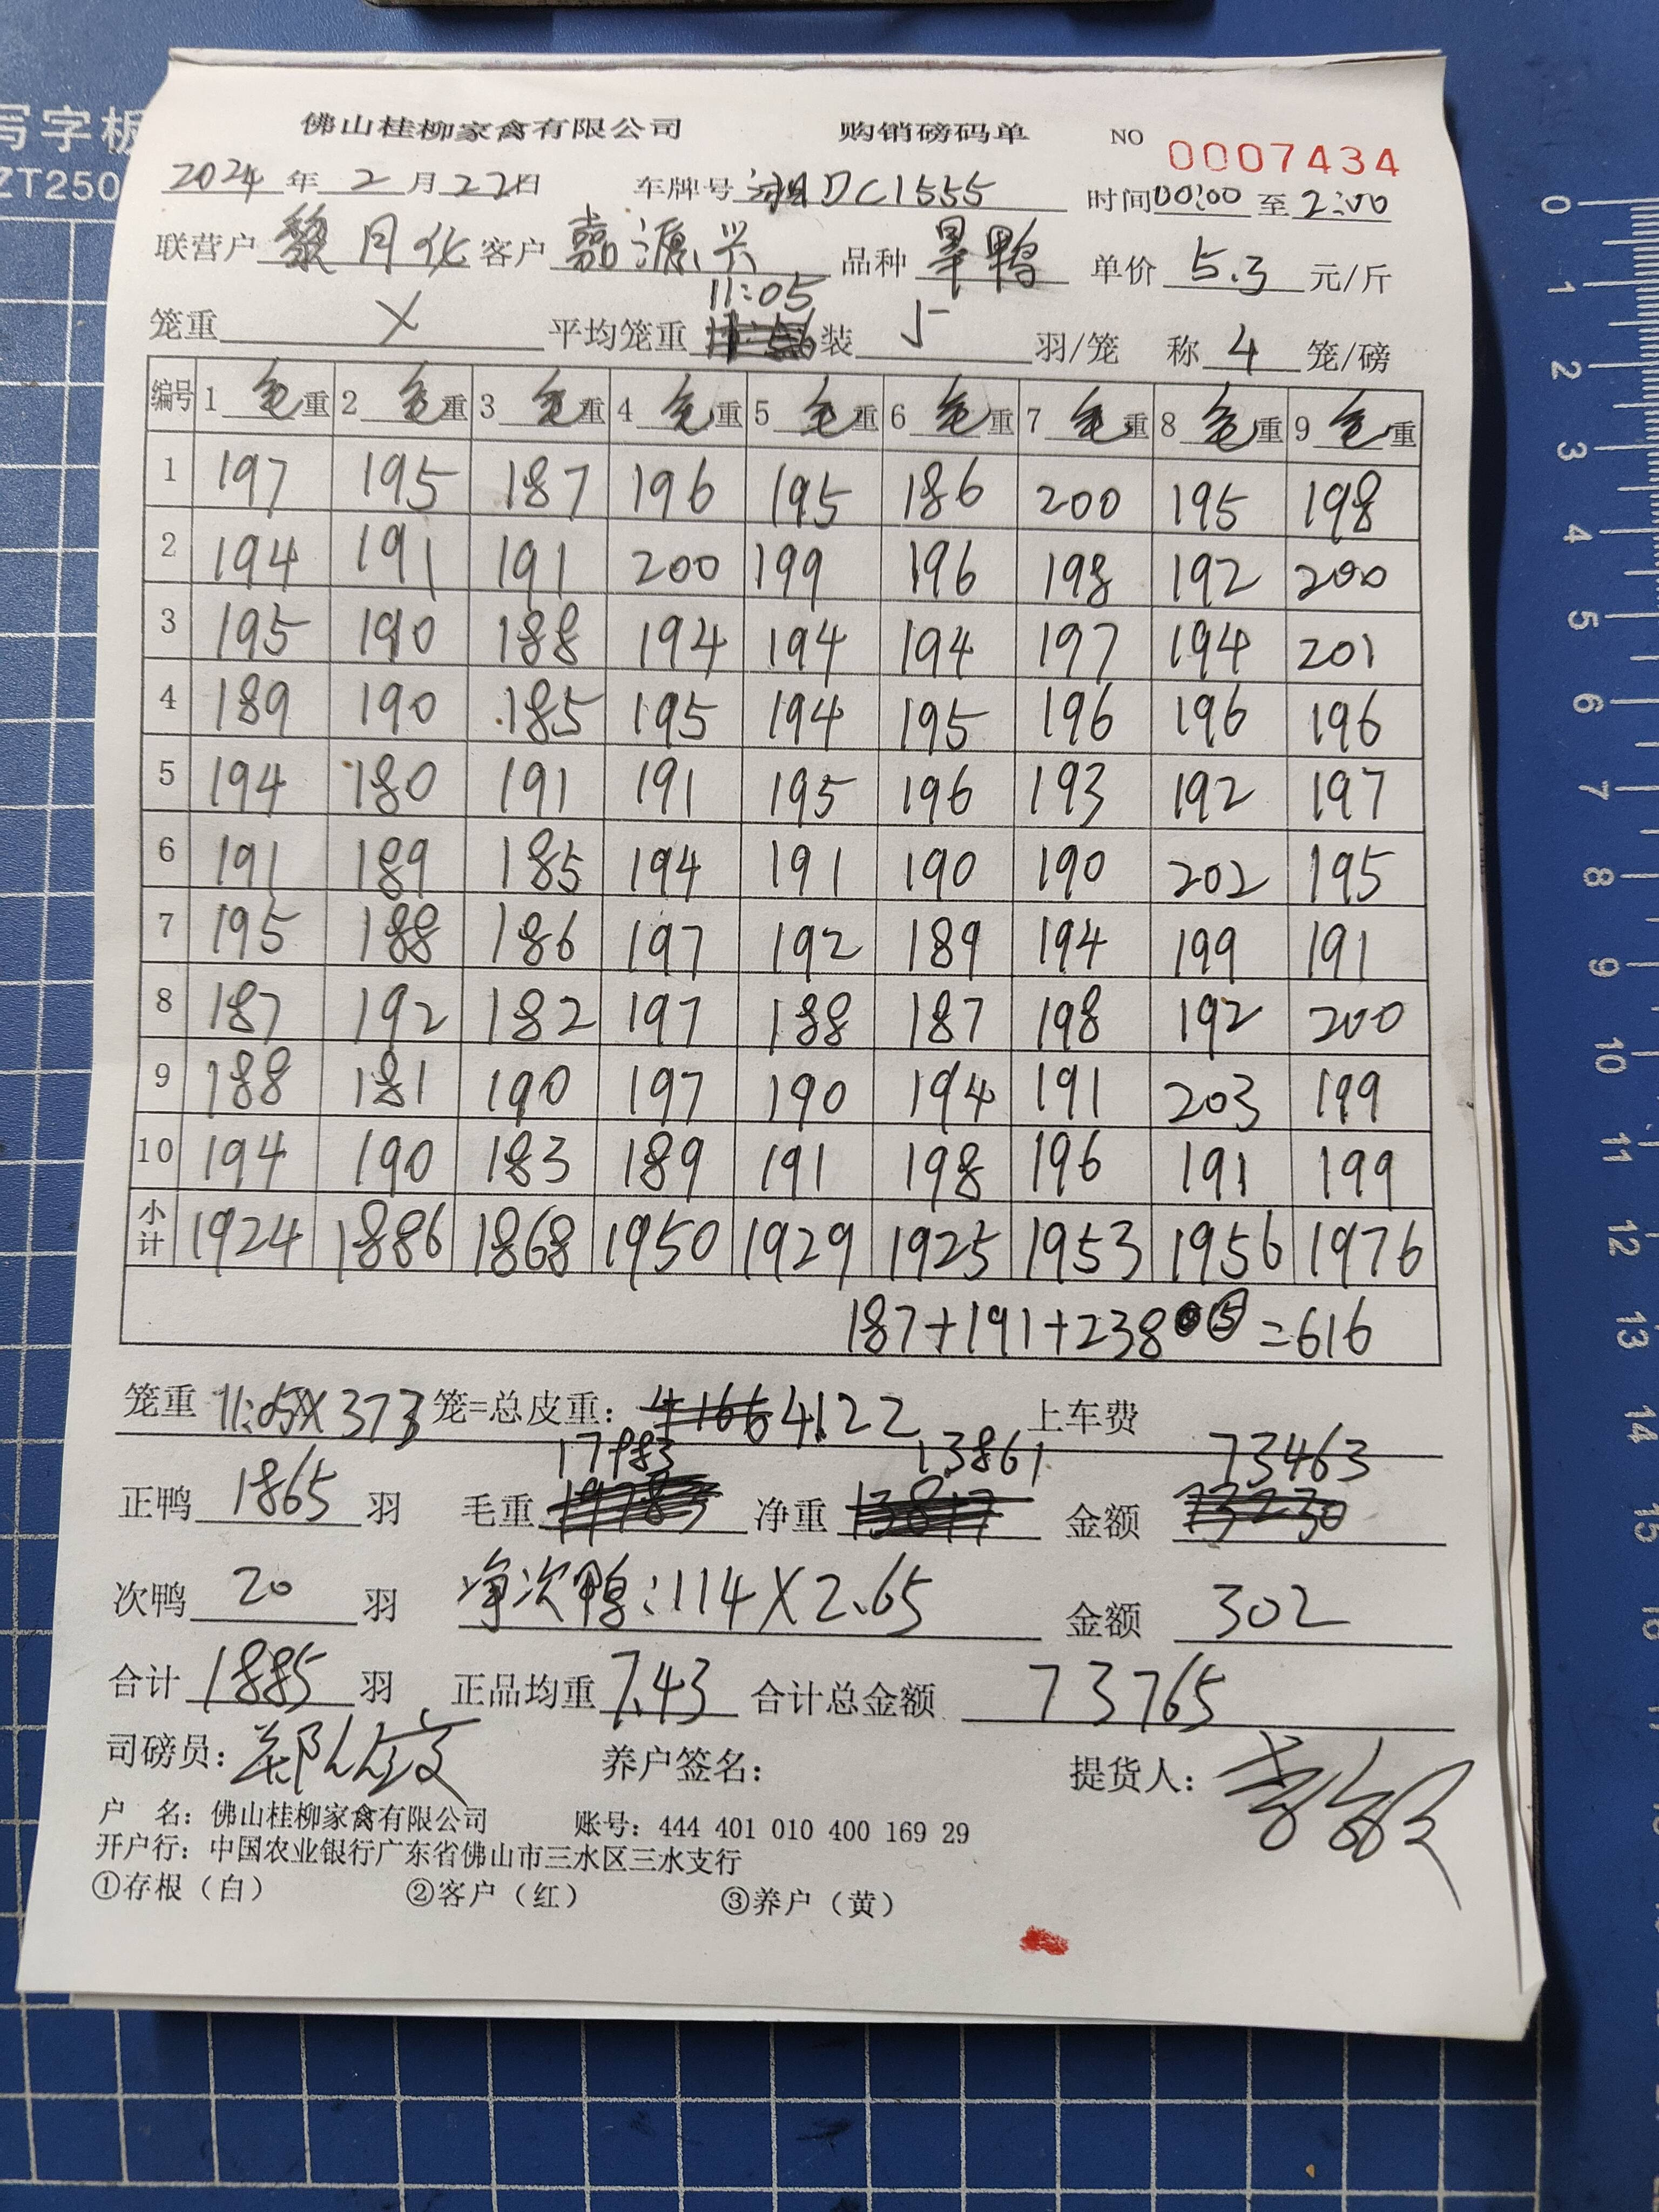 写字板
ZT250
佛山桂柳家禽有限公司 购销磅码单 NO 0007434
2024年2月22日 车牌号 湘DC1555 时间00:00至2:00
联营户 黎月化 客户 嘉源兴 品种 旱鸭 单价 5.3 元/斤
11:05
笼重 X 平均笼重 装 5 羽/笼 称 4 笼/磅
编号 1 毛重 2 毛重 3 毛重 4 毛重 5 毛重 6 毛重 7 毛重 8 毛重 9 毛重
1 197 195 187 196 195 186 200 195 198
2 194 191 191 200 199 196 198 192 200
3 195 190 188 194 194 194 197 194 201
4 189 190 185 195 194 195 196 196 196
5 194 180 191 191 195 196 193 192 197
6 191 189 185 194 191 190 190 202 195
7 195 188 186 197 192 189 194 199 191
8 187 192 182 197 188 187 198 192 200
9 188 181 190 197 190 194 191 203 199
10 194 190 183 189 191 198 196 191 199
小计 1924 1886 1868 1950 1929 1925 1953 1956 1976
187+191+238⑤=616
笼重 11:05X373笼=总皮重: 4166 4122 上车费
17983 13861 73463
正鸭 1865 羽 毛重 净重 13817 金额 73230
次鸭 20 羽 净次鸭:114X2.65 金额 302
合计 1885 羽 正品均重 7.43 合计总金额 73765
司磅员: 养户签名: 提货人:
户 名: 佛山桂柳家禽有限公司 账号: 444 401 010 400 169 29
开户行: 中国农业银行广东省佛山市三水区三水支行
①存根（白） ②客户（红） ③养户（黄）
0
1
2
3
4
5
6
7
8
9
10
11
12
13
14
15
16